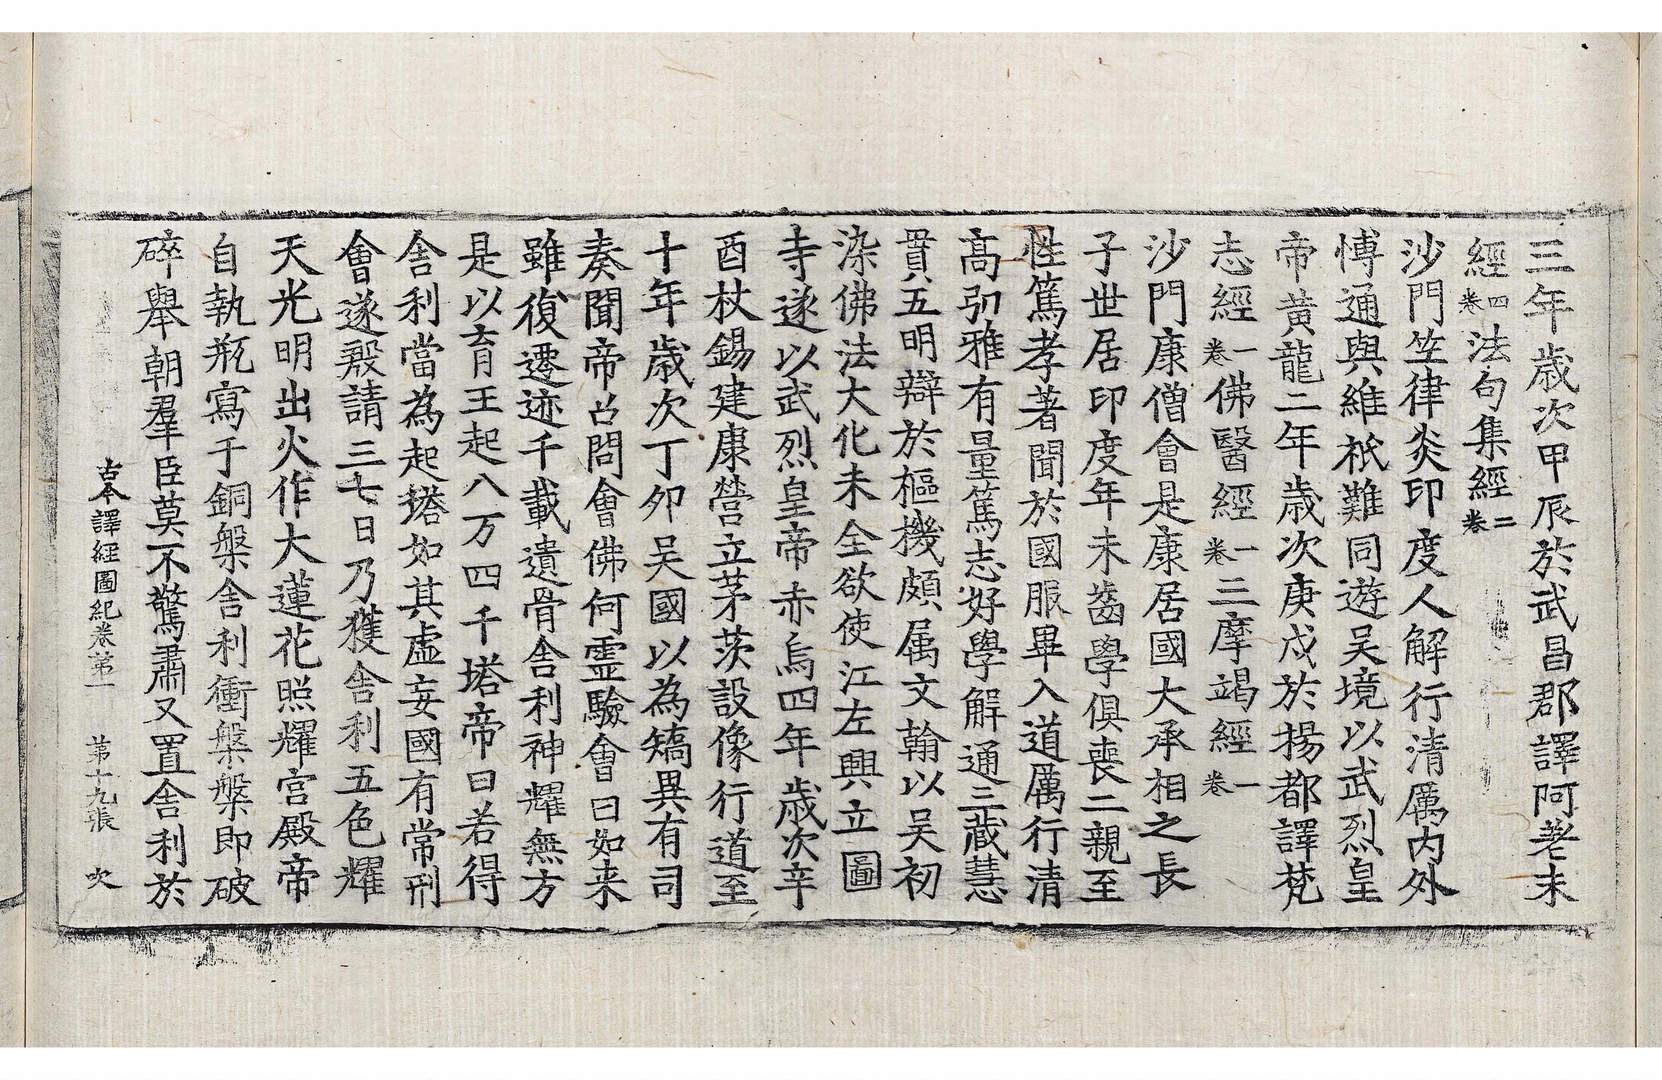 三年歳次甲辰於武昌郡譯阿差末
經四卷法句集經二卷
沙門竺律炎印度人解行清厲内外
愽通與維祇難同遊吴境以武烈皇
帝黄龍二年歳次庚戌於揚都譯梵
志經一卷佛醫經一卷三摩竭經一卷
沙門康僧會是康居國大承相之長
子世居印度年未齒學俱喪二親至
性篤孝著聞於國服畢入道厲行清
髙引雅有量篤志好學解通三藏慧
貫五明辯於樞機頗属文翰以吴初
染佛法大化未全欲使江左興立圖
寺遂以武烈皇帝赤烏四年歳次辛
酉杖錫建康營立茅茨設像行道至
十年歳次丁卯吴國以為矯異有司
奏聞帝召問會佛何靈驗會曰如来
雖復遷迹千載遺骨舎利神耀無方
是以育王起八万四千塔帝曰若得
舎利當為起塔如其虚妄國有常刑
會遂殷請三七日乃獲舎利五色耀
天光明出火作大蓮花照耀宫殿帝
自執瓶寫于銅槃舎利衝槃槃即破
碎舉朝羣臣莫不驚肅又置舎利於
古今譯經圖紀卷第一 第十九張 吹